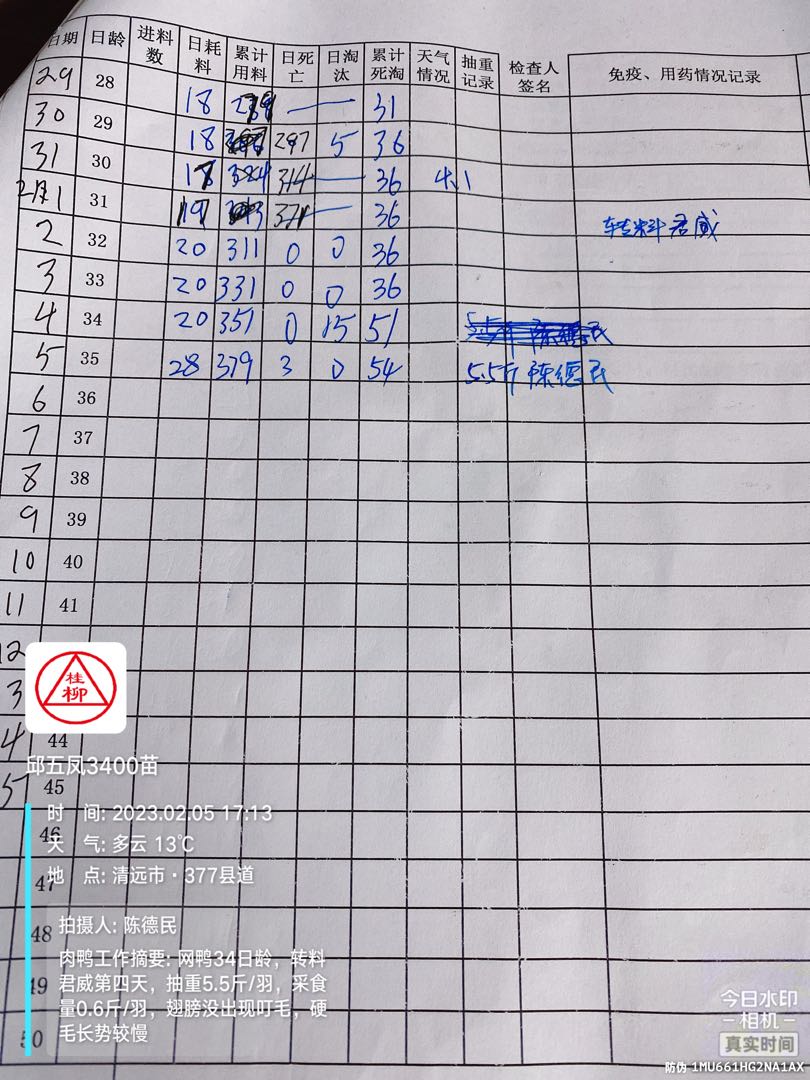 日期 日龄 进料数 日耗料 累计用料 日死亡 日淘汰 累计死淘 天气情况 抽重记录 检查人签名 免疫、用药情况记录
29 28 18 — — 31
30 29 18 297 5 36
31 30 17 324 314 — 36 4.1
2月1 31 19 371 — 36
转料君威
2 32 20 311 0 0 36
3 33 20 331 0 0 36
4 34 20 351 0 15 51
5 35 28 379 3 0 54 5.5斤 陈德民
6 36
7 37
8 38
9 39
10 40
11 41
12
3
4 44
5 45
46
47
48
49
50
桂
柳
邱五凤3400苗
时 间: 2023.02.05 17:13
天 气: 多云 13℃
地 点: 清远市·377县道
拍摄人: 陈德民
肉鸭工作摘要: 网鸭34日龄，转料
君威第四天，抽重5.5斤/羽，采食
量0.6斤/羽，翅膀没出现叮毛，硬
毛长势较慢
今日水印
-相机-
真实时间
防伪 1MU661HG2NA1AX